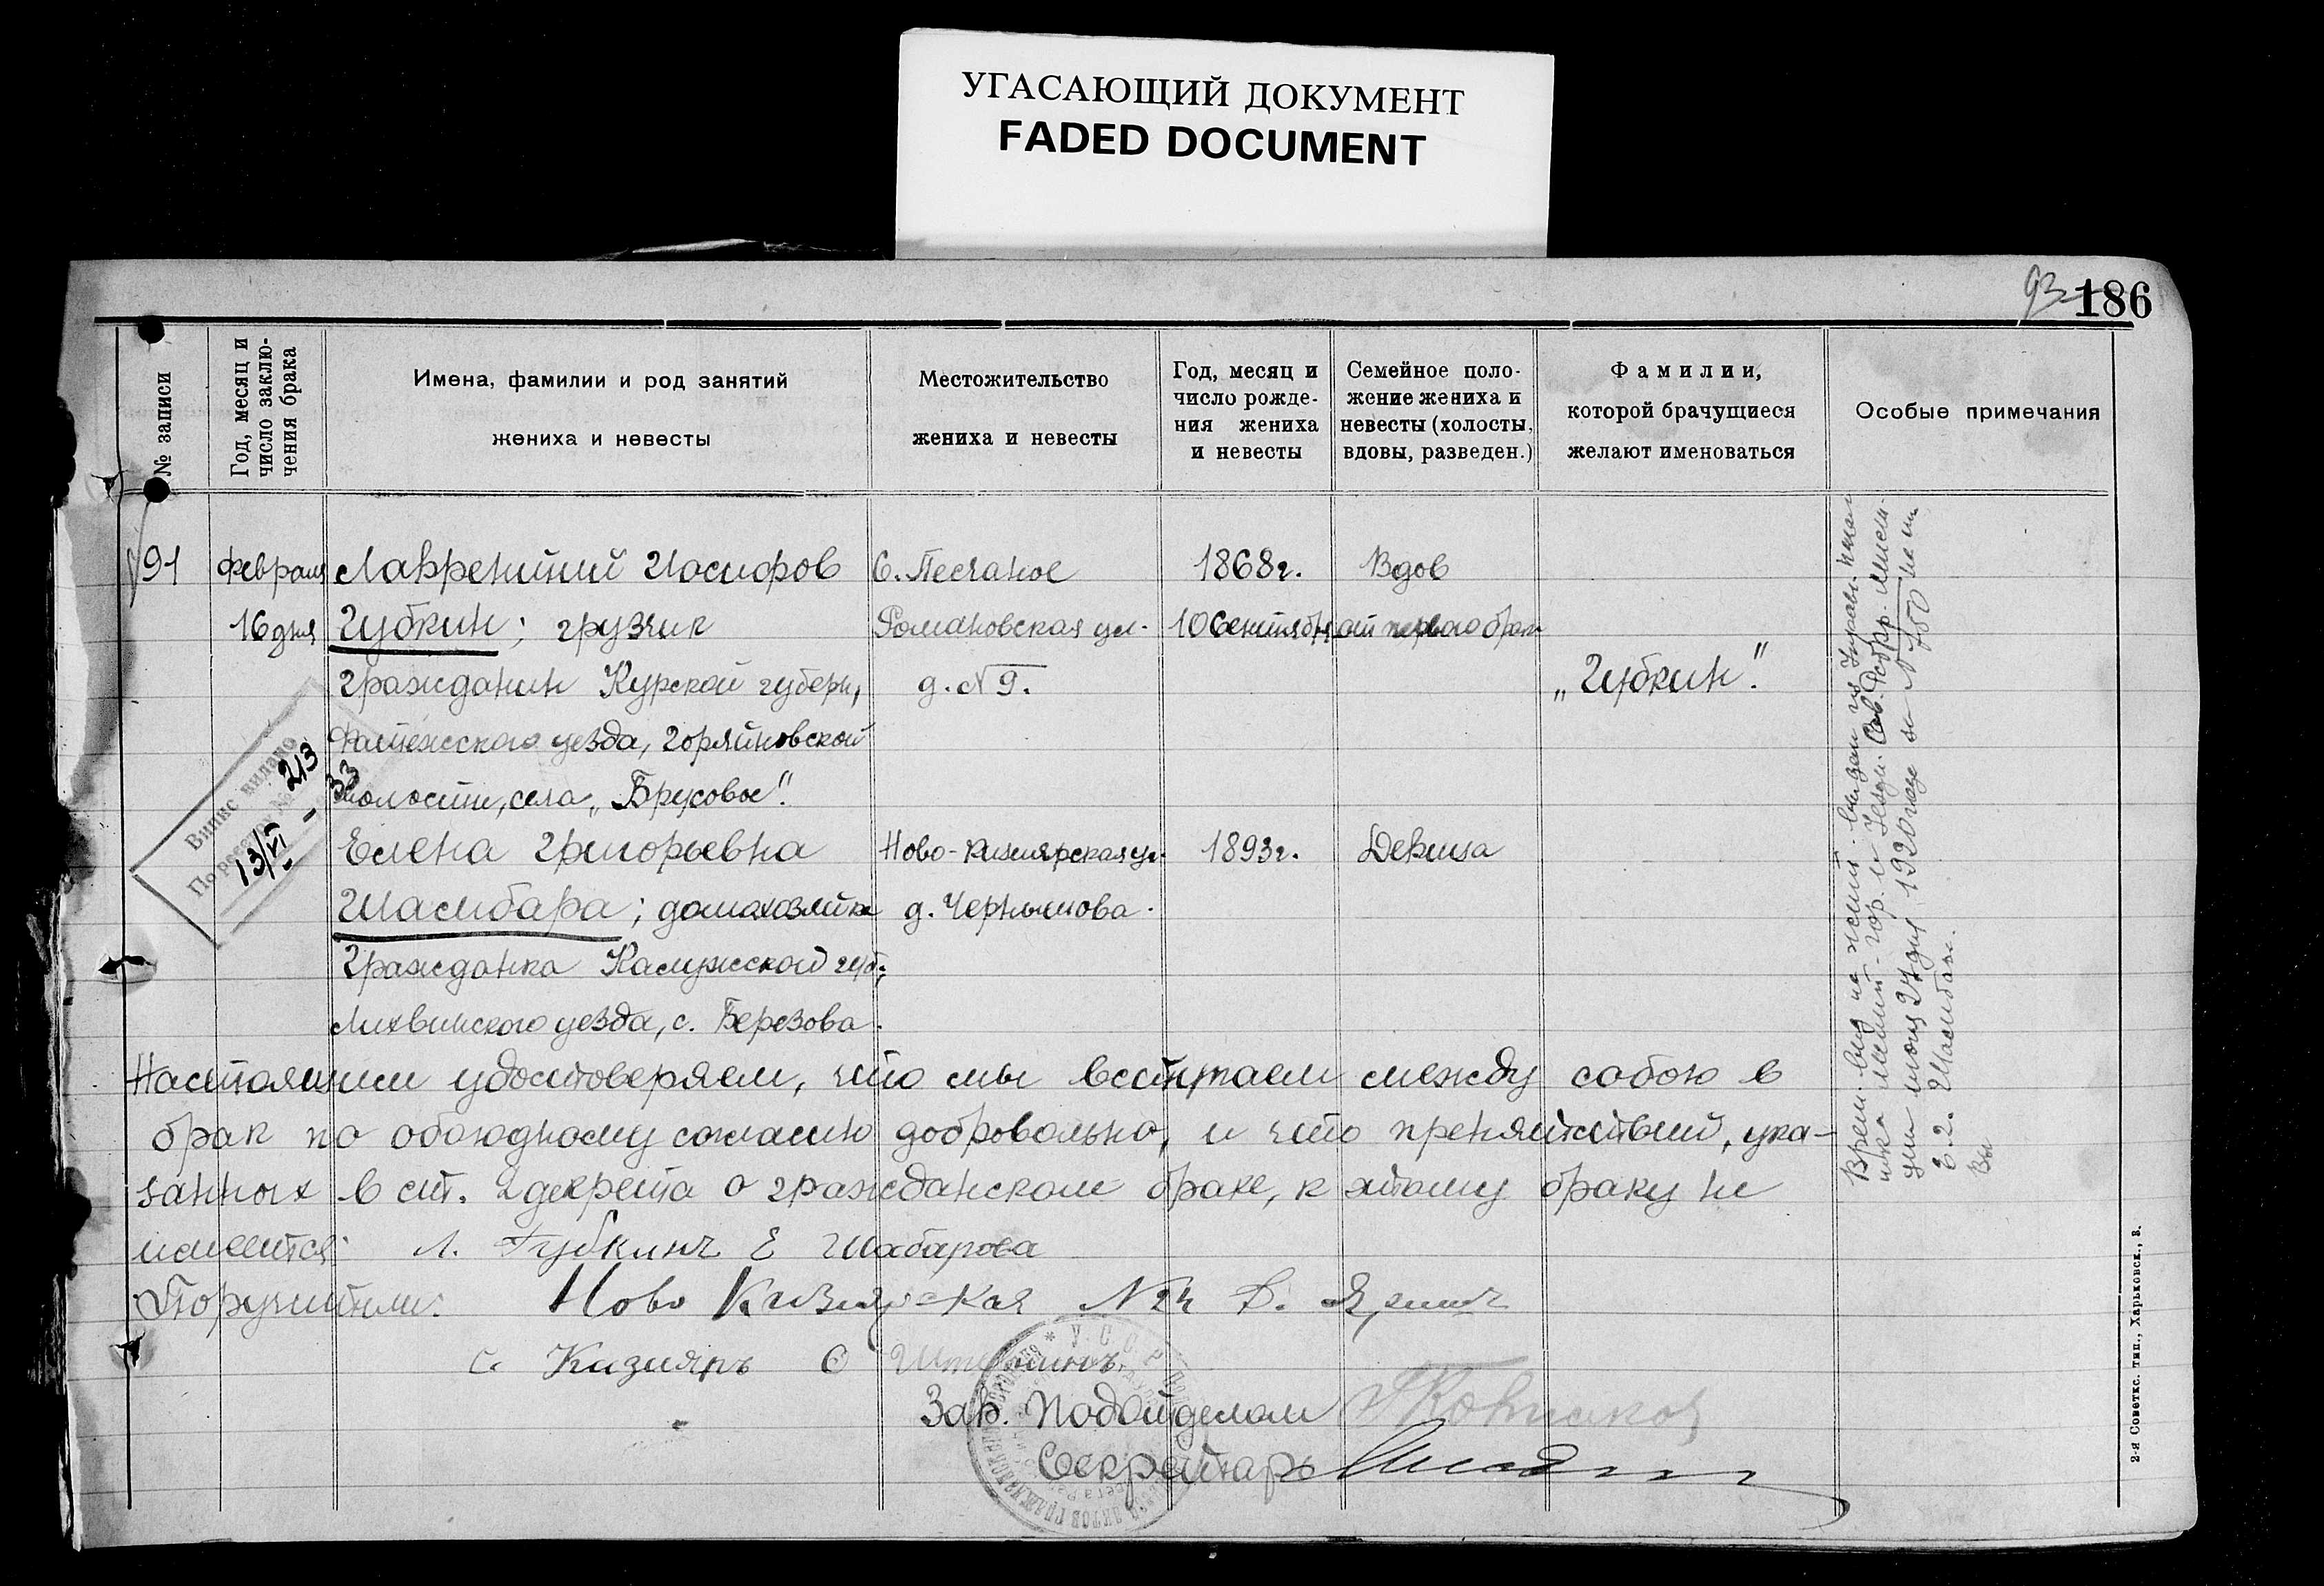 УГАСАЮЩИЙ ДОКУМЕНТ
FADED DOCUMENT
93
186
№ записи
Год, месяц и
число заклю-
чения брака
Имена, фамилии и род занятий
жениха и невесты
Местожительство
жениха и невесты
Год, месяц и
число рожде-
ния жениха
и невесты
Семейное поло-
жение жениха и
невесты (холосты,
вдовы, разведен.)
Фамилии,
которой брачущиеся
желают именоваться
Особые примечания
91
Февраля
16 дня
Лаврентий Иосифов
Губкин; грузчик
гражданин Курской губерн,
Фатежского уезда, Горяйновской
волости, села „Брусовое".
С. Песчаное
Романовская ул.
д. №9.
1868г.
10 Сентября
Вдов
от первого брака
„Губкин".
Випис видано
По реєстру №
213
13/VI - 33
Елена Григорьевна
Шасибара; домохозяйка
гражданка Калужской губ;
Лихвинского уезда, с. Березова.
Ново-Кизиярская ул.
д. Чернышова.
1893г.
Девица
Настоящим удостоверяем, что мы вступаем между собою в
брак по обоюдному согласию добровольно, и что препятствий, ука-
занных в ст. 2 декрета о гражданском браке, к этому браку не
имеется: Л. Губкинъ Е Шабарова
Поручители: Ново Кизиярская №24
с. Кизияръ
Зав. Подотделом
Секретарь
Врем. вид на жит.
27 дня 1920 года за № 780 на имя
Е. Г. Шасибара.
У.С.С.Р.
2-я Советск. тип., Харьковск., 8.